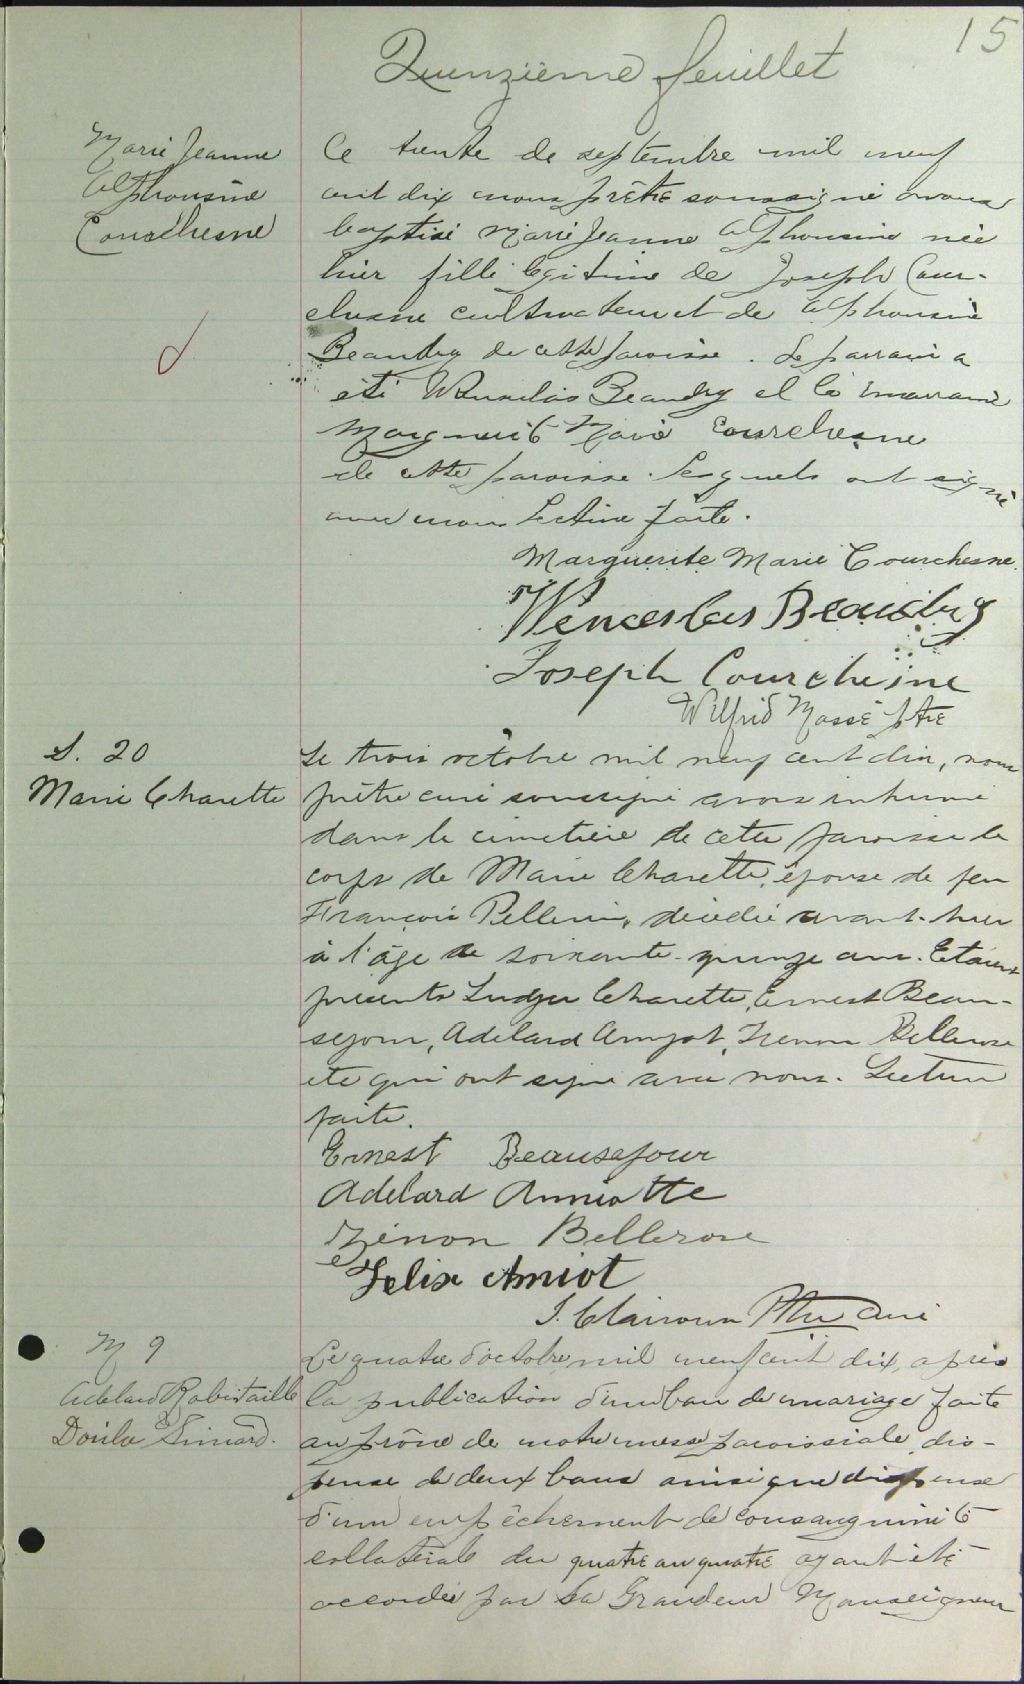 15
Quinzième feuillet
Marie Jeanne
Alphonsine
Courchesne
Ce trente de septembre mil neuf
cent dix nous prêtre soussigné avons
baptisé Marie Jeanne Alphonsine née
hier fille légitime de Joseph Cour-
chesne cultivateur et de Alphonsine
Beaudry de cette paroisse. Le parrain a
été Wenceslas Beaudry et la marraine
Marguerite Marie Courchesne
de cette paroisse. Lesquels ont signé
avec nous Lecture faite.
Marguerite Marie Courchesne.
Wenceslas Beaudry
Joseph Courchesne
Wilfrid Massé ptre
S. 20
Marie Charette
Le trois octobre mil neuf cent dix, nous
prêtre curé soussigné avons inhumé
dans le cimetière de cette paroisse le
corps de Marie Charette, épouse de feu
François Pellerin, décédée avant-hier
à l'âge de soixante-quinze ans. Etaient
présents Ludger Charette, Ernest Beau-
sejour, Adelard Amyot, Zenon Bellerose
etc qui ont signé avec nous. Lecture
faite.
Ernest Beausejour
Adelard Anniotte
Zénon Bellerose
Felix Amiot
J. Clairoux Ptre Curé
M 9
Adelard Robitaille
&
Donila Simard.
Le quatre d'octobre mil neuf cent dix, après
la publication d'un ban de mariage faite
au prône de notre messe paroissiale, dis-
pense de deux bans ainsi que dispense
d'un empêchement de consanguinité
collatérale du quatre au quatre ayant été
accordée par Sa Grandeur Monseigneur